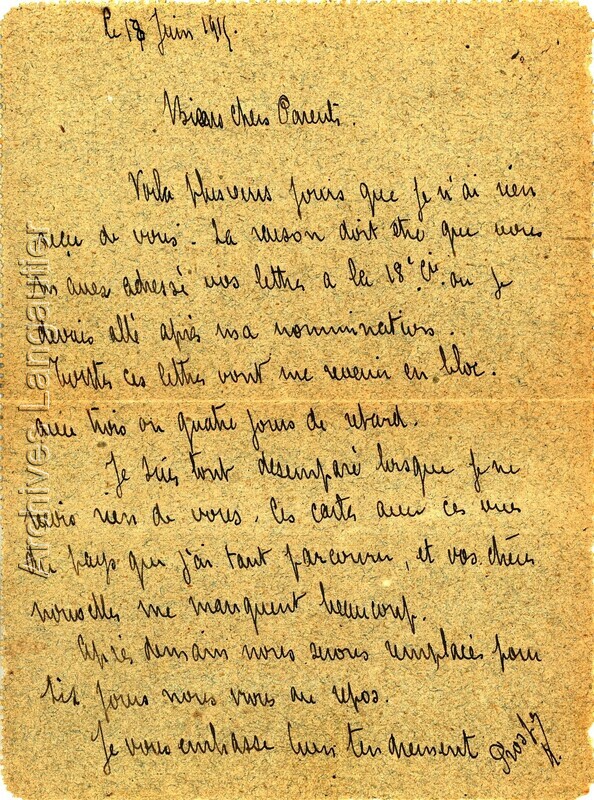 Le 18 Juin 1915.
Biens chers Parents.
Voila plusieurs jours que je n'ai rien
reçu de vous. La raison doit être que vous
m'avez adressé vos lettres a la 18e Cie. ou je
devais allé après ma nommination.
Toutes ces lettres vont me revenir en bloc.
avec trois ou quatre jours de retard.
Je suis tout desemparé lorsque je ne
reçois rien de vous. Ces cartes avec ces vues
du pays que j'ai tant parcouru, et vos chères
nouvelles me manquent beaucoup.
Après demain nous serons remplacés pour
six jours nous irons au repos.
Je vous embrasse bien tendrement
Archives Lancautier